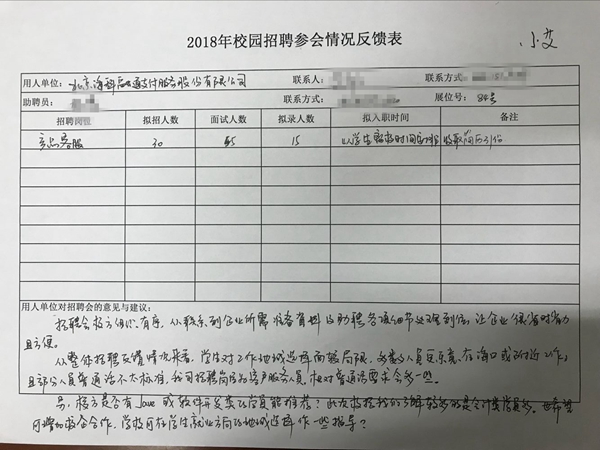 2018年校园招聘参会情况反馈表
小艾
用人单位：北京海科融通支付服务股份有限公司 联系人： 联系方式：
助聘员： 联系方式： 展位号： 84号
招聘岗位 拟招人数 面试人数 拟录人数 拟入职时间 备注
客服 30 45 15 以学生 时间 收取简历31份
用人单位对招聘会的意见与建议：
招聘会校方组织有序，从联系到企业所需准备资料以及助聘各项细节处理到位，让企业很省时省力
且方便。
从整体招聘反馈情况来看，学生对工作地域选择面较局限，多数人员只愿意在海口或附近工作，
且部分人员普通话不太标准，我司招聘岗位为客户服务人员，相对普通话要求会多一些。
另，校方是否有Java或软件开发类的学员能推荐？此次校招我们了解较多的是会计类学员多。也希望
可增加校企合作，学校可在学生就业方向及地域选择作一些指导？